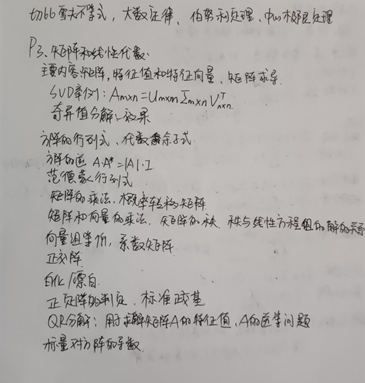 切比雪夫不等式, 大数定律, 伯努利定理, 中心极限定理
P3. 矩阵和线性代数.
主要内容矩阵, 特征值和特征向量, 矩阵求导.
SVD举例: Amxn = Umxm Σmxn V^T nxn.
奇异值分解, 效果
方阵的行列式, 代数余子式
方阵的逆 A·A* = |A|·I
范德蒙行列式
矩阵的乘法, 概率转移矩阵
矩阵和向量的乘法, 矩阵的秩, 秩与线性方程组的解的关系
向量组等价, 系数矩阵
正交阵
白化/漂白
正定阵的判定, 标准正交基
QR分解: 用于求解矩阵A的特征值, A的逆等问题
标量对方阵的导数